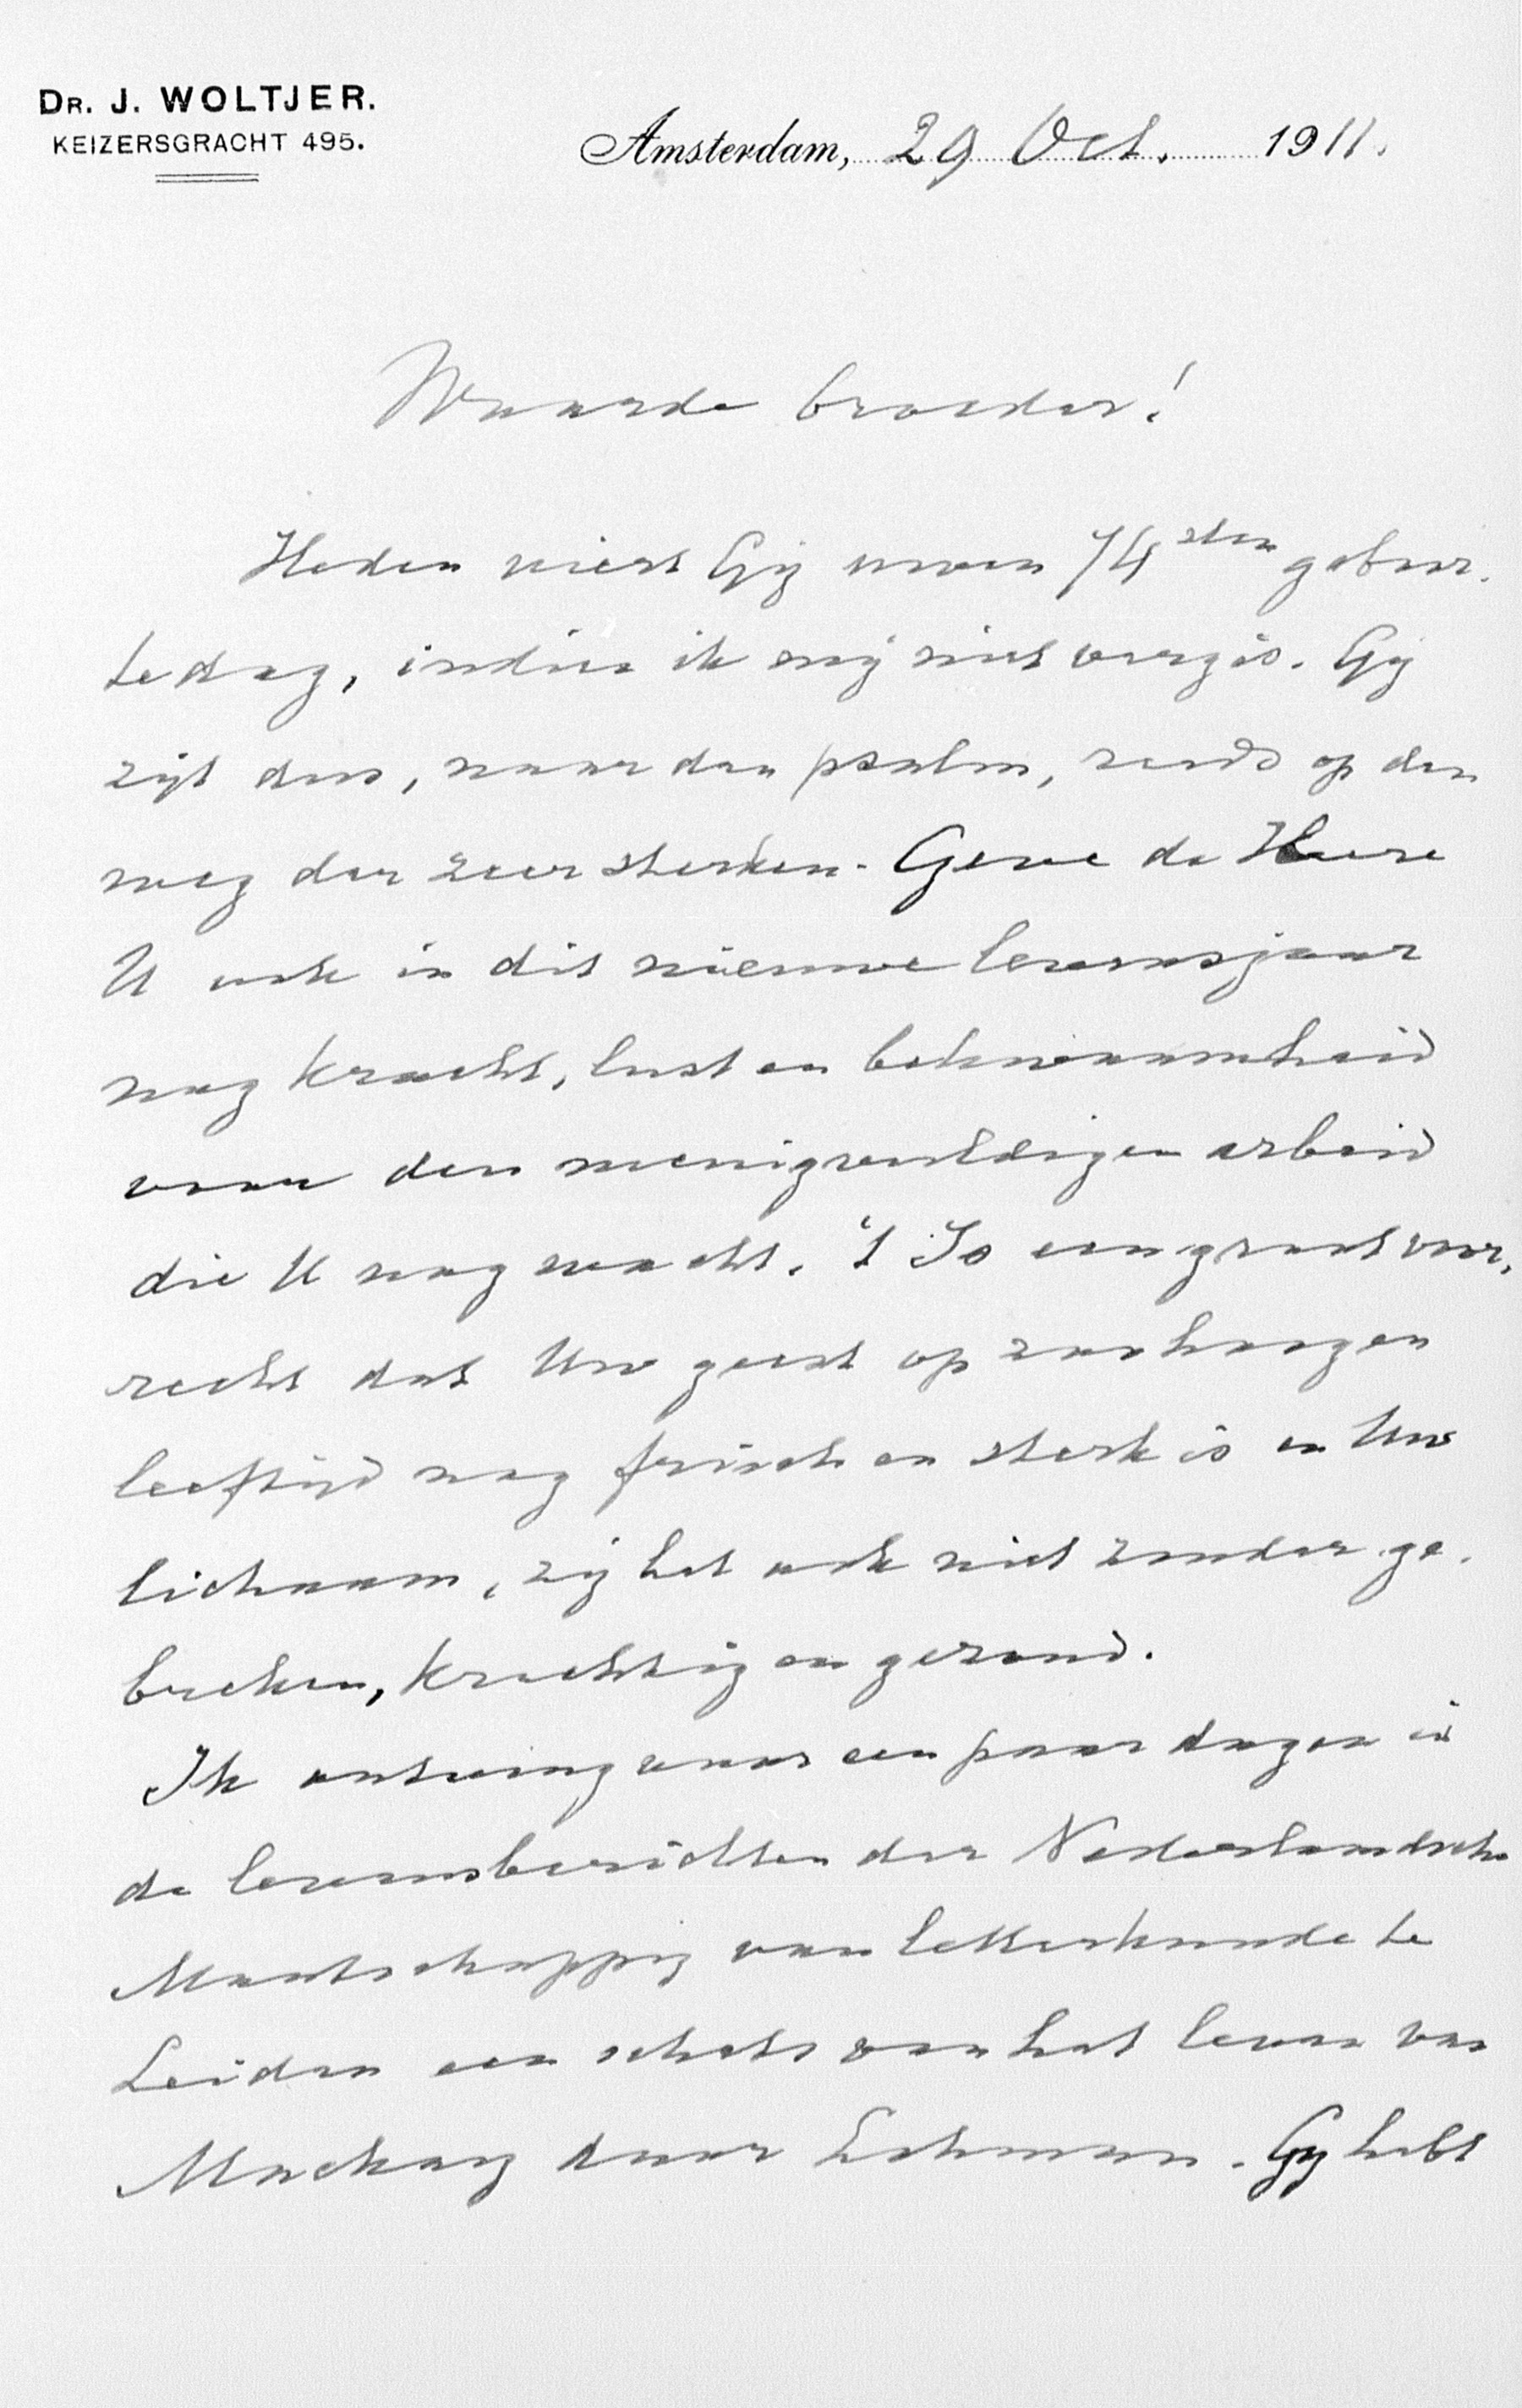 DR. J. WOLTJER.
KEIZERSGRACHT 495.
Amsterdam, 29 Oct. 1911.
Waarde broeder!
Heden viert Gij uwen 74sten geboor-
tedag, indien ik mij niet vergis. Gij
zijt dus, naar den psalm, reeds op den
weg der zeer sterken. Geve de Heere
U ook in dit nieuwe levensjaar
nog kracht, lust en bekwaamheid
voor den menigvuldigen arbeid
die U nog wacht. 't Is een groot voor-
recht dat Uw geest op zoo hoogen
leeftijd nog frisch en sterk is en Uw
lichaam, zij het ook niet zonder ge-
breken, krachtig en gezond.
Ik ontving voor een paar dagen in
de levensberichten der Nederlandsche
Maatschappij van letterkunde te
Leiden een schets van het leven van
Mackay door Lohman. Gij hebt